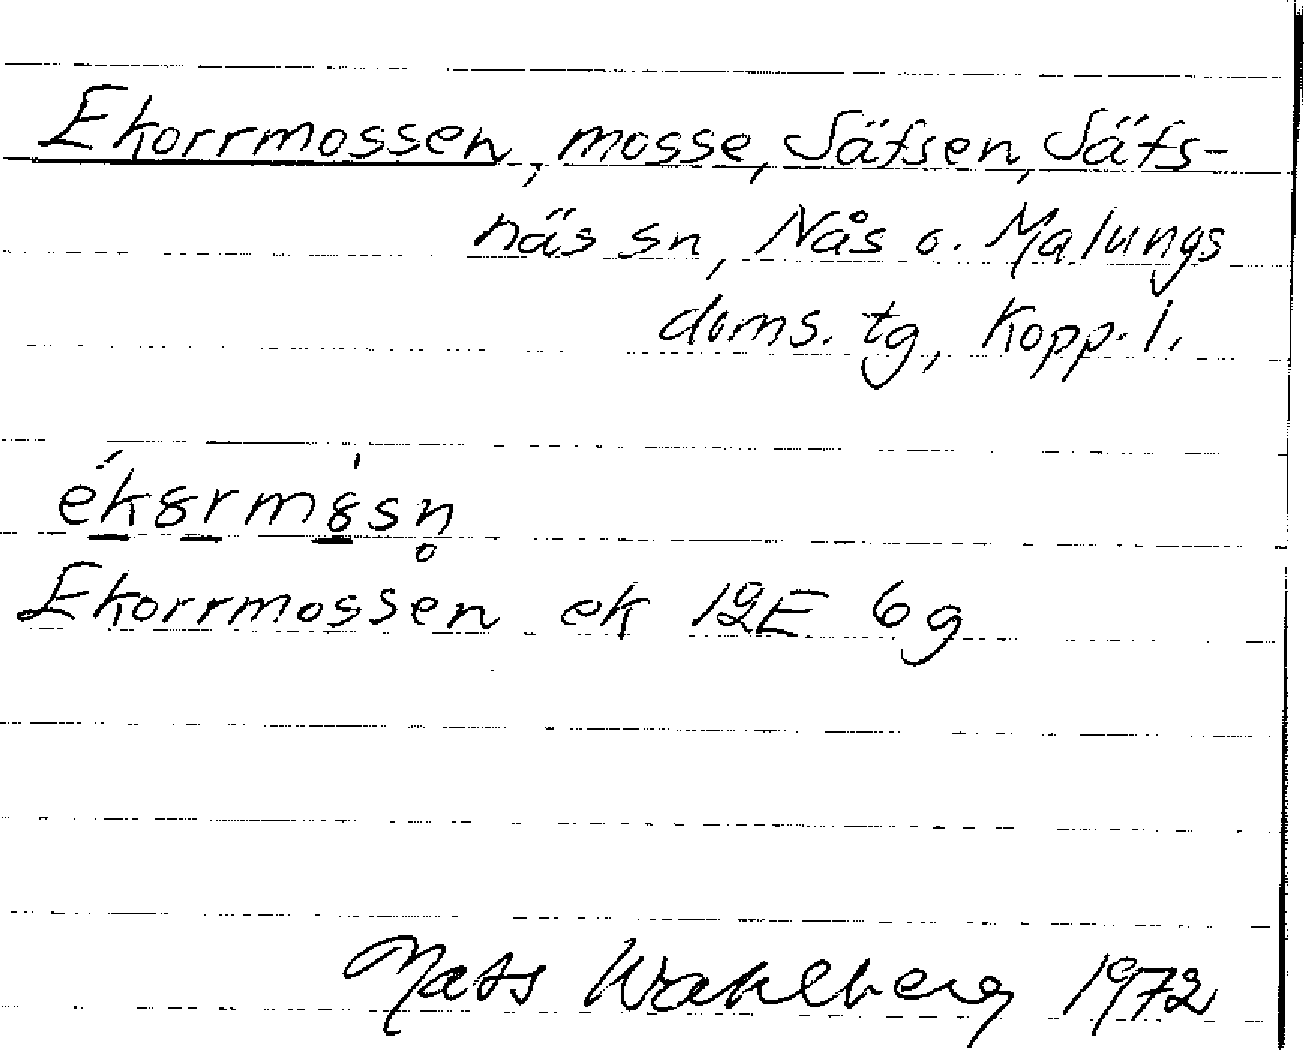 Ekorrmossen, mosse, Säfsen, Säfs-
näs sn, Nås o. Malungs
doms. tg, Kopp. l.
ék8rm8̀sn̥
Ekorrmossen ek 12E 6g
Mats Wahlberg 1972